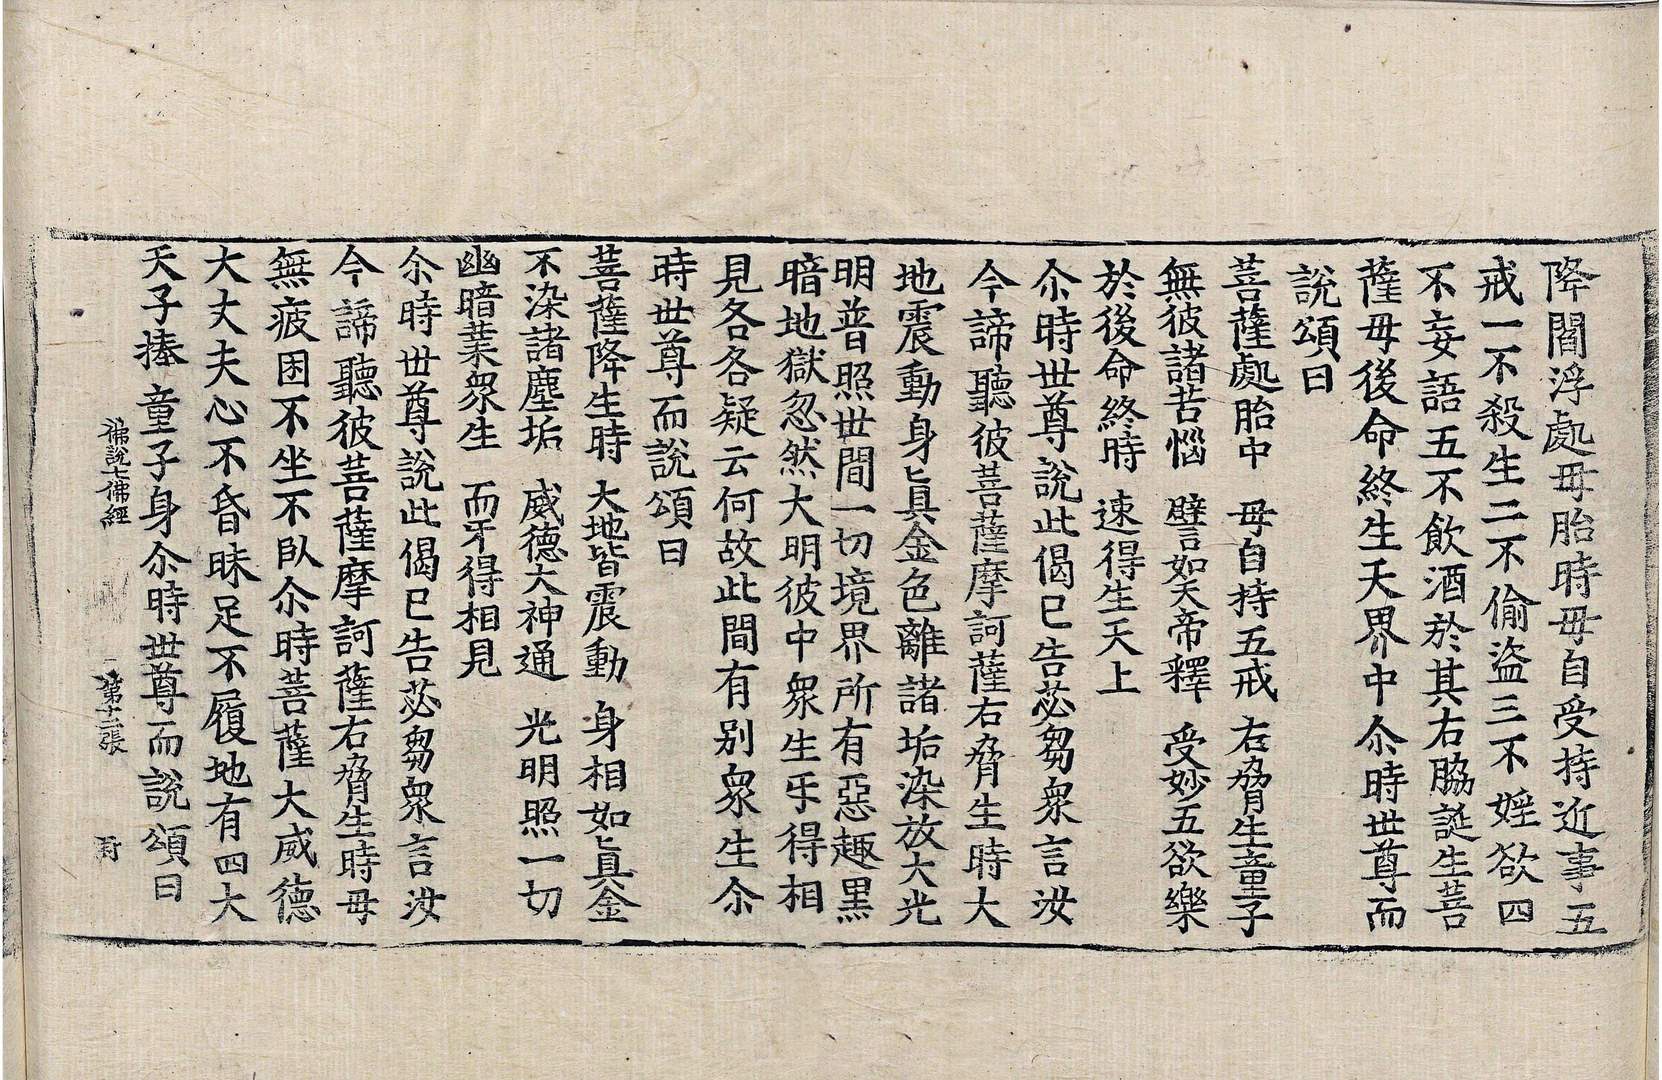 降閻浮處毋胎時毋自受持近事五
戒一不殺生二不偷盗三不婬欲四
不妄語五不飲酒於其右脇誕生菩
薩毋後命終生天界中尒時世尊而
說頌曰
菩薩處胎中　毋自持五戒　右脅生童子
無彼諸苦惱　譬如天帝釋　受妙五欲樂
於後命終時　速得生天上
尒時世尊說此偈已告苾芻衆言汝
今諦聽彼菩薩摩訶薩右脅生時大
地震動身真金色離諸垢染放大光
明普照世間一切境界所有惡趣黑
暗地獄忽然大明彼中衆生乎得相
見各各疑云何故此間有别衆生尒
時世尊而說頌曰
菩薩降生時　大地皆震動　身相如真金
不染諸塵垢　威德大神通　光明照一切
幽暗業衆生　而乎得相見
尒時世尊說此偈已告苾芻衆言汝
今諦聽彼菩薩摩訶薩右脅生時毋
無疲困不坐不卧尒時菩薩大威德
大丈夫心不昏昧足不履地有四大
天子捧童子身尒時世尊而說頌曰
佛說七佛經　第十二張